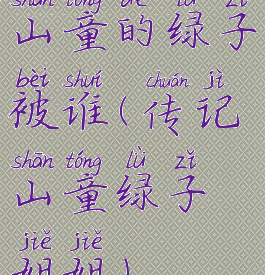 shān tóng de lǜ zǐ
山童的绿子
bèi shuí chuán jì
被谁(传记
shān tóng lǜ zǐ
山童绿子
jiě jiě
姐姐)